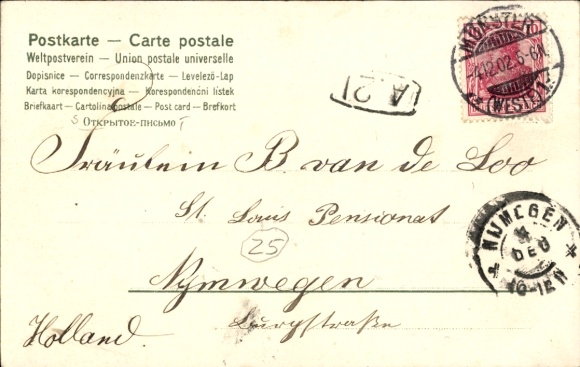 Postkarte — Carte postale
Weltpostverein — Union postale universelle
Dopisnice — Correspondenzkarte — Levelező-Lap
Karta korespondencyjna — Korespondenční lístek
Briefkaart — Cartolina postale — Post card — Brefkort
Открытое письмо
A.2
MÜNSTER
4.12.02.5-6N.
(WESTF.) 1.
Fräulein B. van de Loo
St. Louis Pensionat
25
NIJMEGEN
DEC
10-12N
Nymwegen
Burgstraße
Holland.